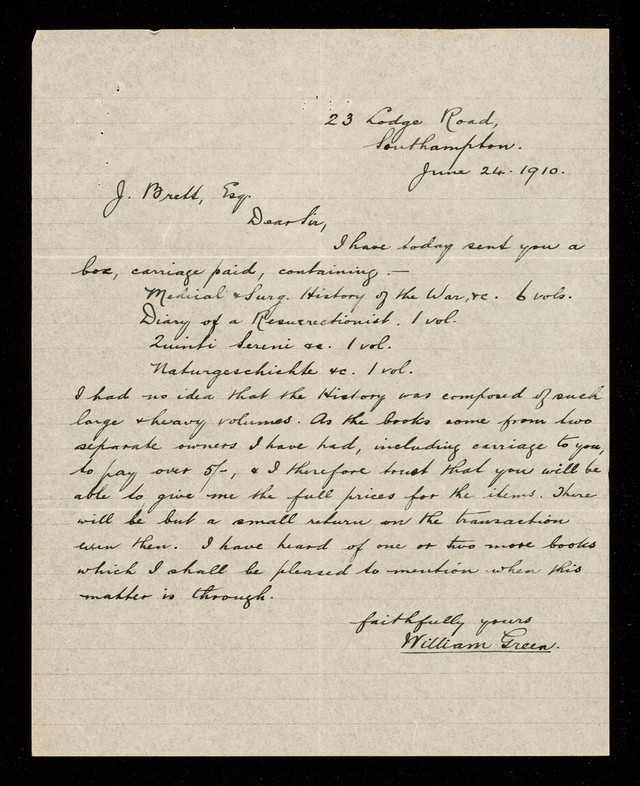 23 Lodge Road,
Southampton.
June 24. 1910.
J. Brett, Esq.
Dear Sir,
I have today sent you a
box, carriage paid, containing :—
Medical & Surg. History of the War, &c. 6 vols.
Diary of a Resurrectionist. 1 vol.
Quinti Sereni &c. 1 vol.
Naturgeschichte &c. 1 vol.
I had no idea that the History was composed of such
large & heavy volumes. As the books come from two
separate owners I have had, including carriage to you,
to pay over 5/-, & I therefore trust that you will be
able to give me the full prices for the items. There
will be but a small return on the transaction
even then. I have heard of one or two more books
which I shall be pleased to mention when this
matter is through.
faithfully yours
William Green.